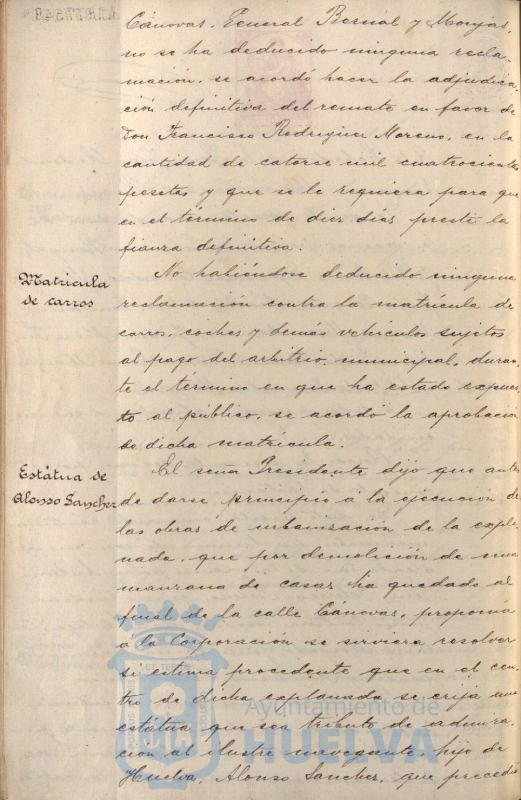 Cánovas, General Bernal y Monjas,
no se ha deducido ninguna recla-
mación, se acordó hacer la adjudica-
ción definitiva del remate en favor de
Don Francisco Rodriguez Moreno, en la
cantidad de catorce mil cuatrocientas
pesetas, y que se le requiera para que
en el término de diez días preste la
fianza definitiva.
Matrícula
de carros
No habiéndose deducido ninguna
reclamación contra la matrícula de
carros, coches y demás vehículos sujetos
al pago del arbitrio municipal, duran-
te el término en que ha estado expues-
to al público, se acordó la aprobación
de dicha matrícula.
Estátua de
Alonso Sanchez
El señor Presidente dijo que antes
de darse principio á la ejecución de
las obras de urbanización de la expla-
nada, que por demolición de una
manzana de casas ha quedado al
final de la calle Cánovas, proponía
a la Corporación se sirviera resolver
si estima procedente que en el cen-
tro de dicha explanada se erija una
estátua que sea tributo de admira-
ción al ilustre navegante, hijo de
Huelva, Alonso Sanchez, que precedió
Ayuntamiento de
HUELVA